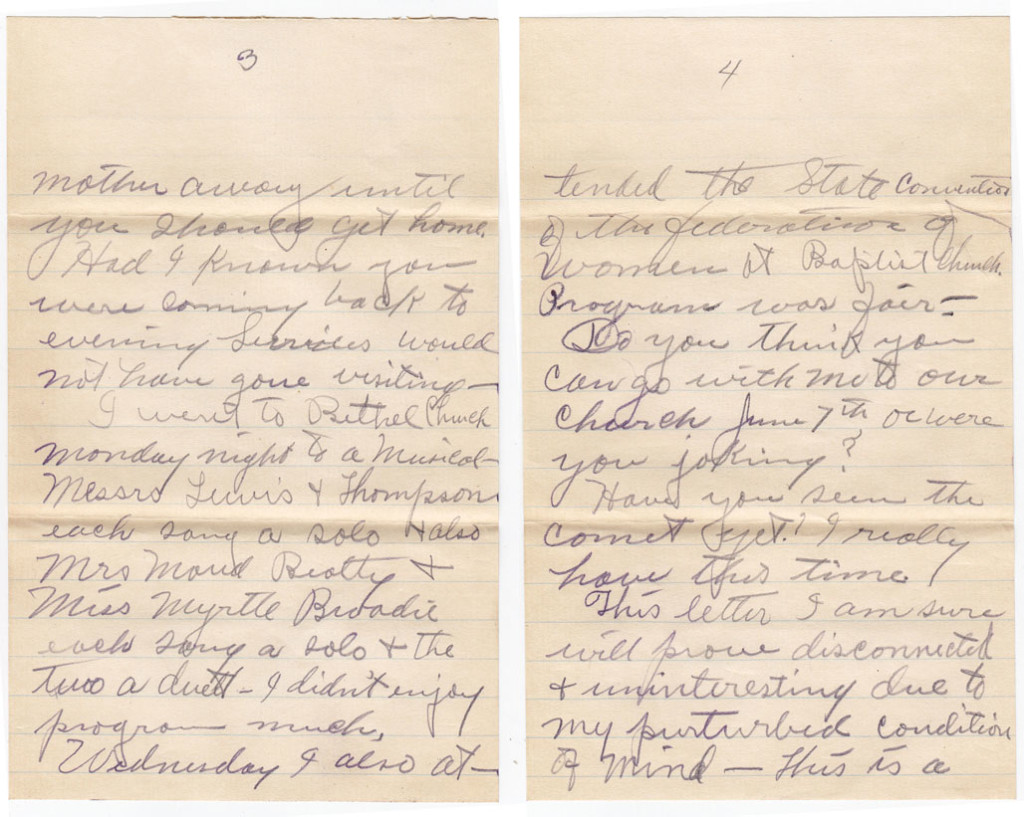 3
mother away until
you should get home.
Had I known you
were coming back to
evening Services would
not have gone visiting—
I went to Bethel Church
Monday night to a Musical—
Messrs Lewis & Thompson
each sang a solo & also
Mrs Maud Beatty &
Miss Myrtle Broadie
each sang a solo & the
two a duett - I didn't enjoy
program much,
Wednesday I also at-
4
tended the State Convention
of the federation of
Women at Baptist Church.
Program was fair—
Do you think you
can go with me to our
Church June 7th, or were
you joking?
Have you seen the
comet yet? I really
have this time.
This letter I am sure
will prove disconnected
& uninteresting due to
my purturbed condition
of mind — This is a